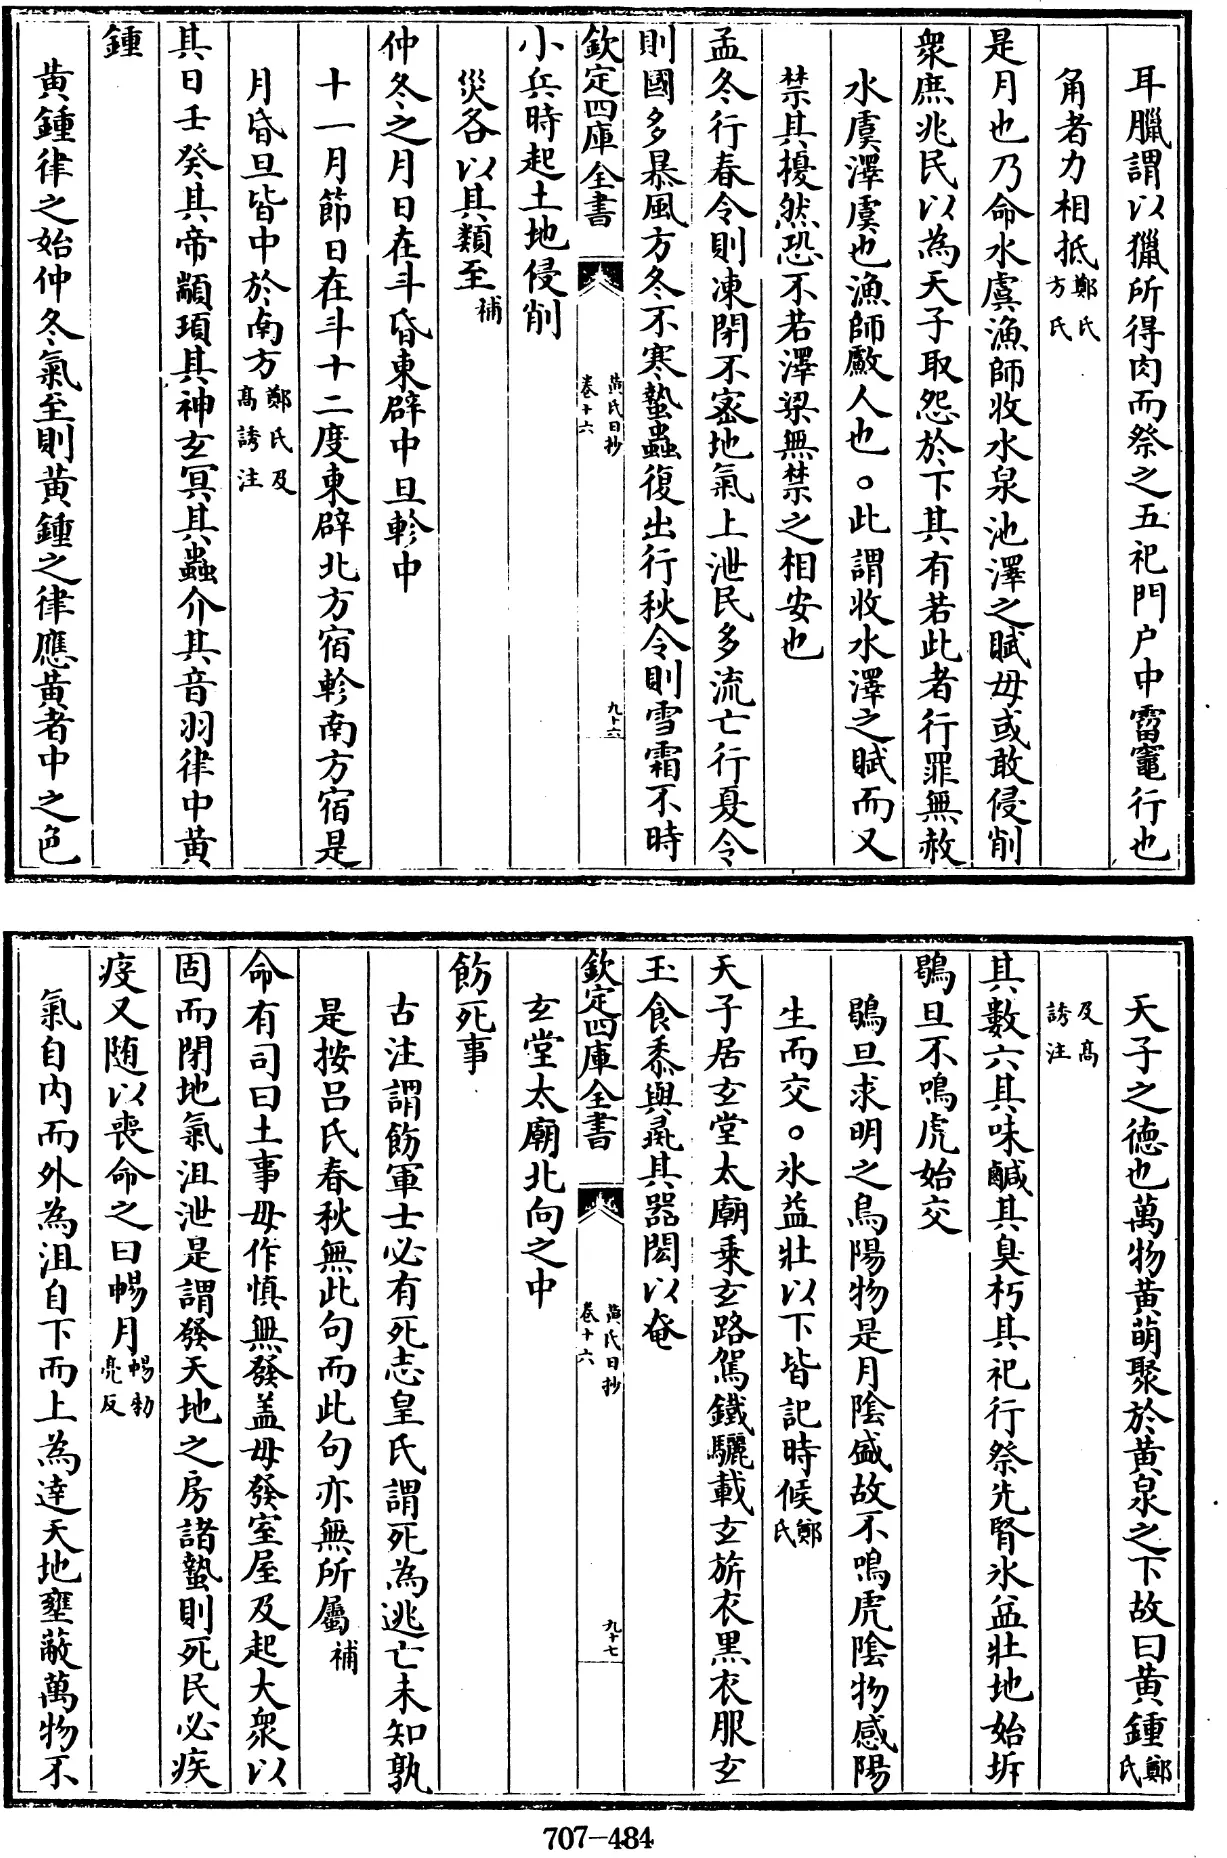 耳臘謂以獵所得肉而祭之五祀門户中霤竈行也
角者力相抵鄭氏方氏
是月也乃命水虞漁師收水泉池澤之賦毋或敢侵削
衆庶兆民以為天子取怨於下其有若此者行罪無赦
水虞澤虞也漁師䱷人也○此謂收水澤之賦而又
禁其擾然恐不若澤梁無禁之相安也
孟冬行春令則凍閉不宻地氣上泄民多流亡行夏令
則國多暴風方冬不寒蟄蟲復出行秋令則雪霜不時
欽定四庫全書
黄氏日抄
卷十六
九十六
小兵時起土地侵削
災各以其類至補
仲冬之月日在斗昏東辟中旦軫中
十一月節日在斗十二度東辟北方宿軫南方宿是
月昏旦皆中於南方鄭氏及高誘注
其日壬癸其帝顓頊其神玄冥其蟲介其音羽律中黄
鍾
黄鍾律之始仲冬氣至則黄鍾之律應黄者中之色
天子之徳也萬物黄萌聚於黄泉之下故曰黄鍾鄭氏
及高誘注
其數六其味鹹其臭朽其祀行祭先腎氷益壯地始坼
鶡旦不鳴虎始交
鶡旦求明之鳥陽物是月陰盛故不鳴虎陰物感陽
生而交○氷益壯以下皆記時候鄭氏
天子居玄堂太廟乘玄路駕鐵驪載玄旂衣黑衣服玄
玉食黍與彘其器閎以奄
欽定四庫全書
黄氏日抄
卷十六
九十七
玄堂太廟北向之中
飭死事
古注謂飭軍士必有死志皇氏謂死為逃亡未知孰
是按吕氏春秋無此句而此句亦無所屬補
命有司曰土事毋作慎無發盖毋發室屋及起大衆以
固而閉地氣沮泄是謂發天地之房諸蟄則死民必疾
疫又随以喪命之曰暢月暢勑亮反
氣自内而外為沮自下而上為逹天地壅蔽萬物不
707-484